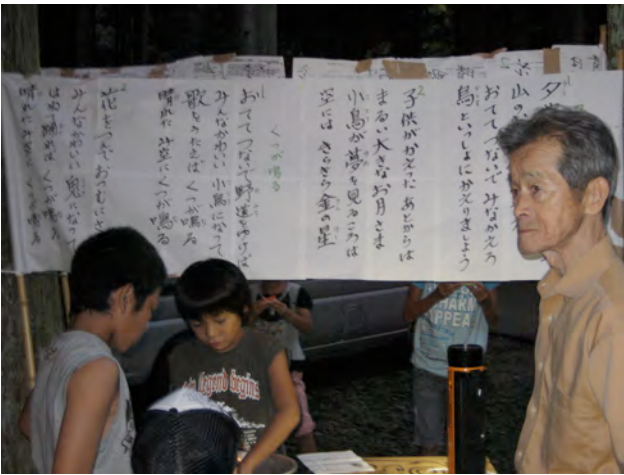 夕
山の
おててつないで みなかえろ
鳥といっしょに かえりましょう
2 子供がかえった あとからは
まるい大きな お月さま
小鳥が夢を 見るころは
空には きらきら 金の星
くつが鳴る
1 おててつないで 野道をゆけば
みんなかわいい 小鳥になって
歌をうたえば くつが鳴る
晴れた み空に くつが鳴る
2 花をつんで おつむにさ
みんなかわいい 兎になって
はねて踊れば くつが鳴る
晴れた み空に くつが鳴る
Legend begins
HARM
APPEA